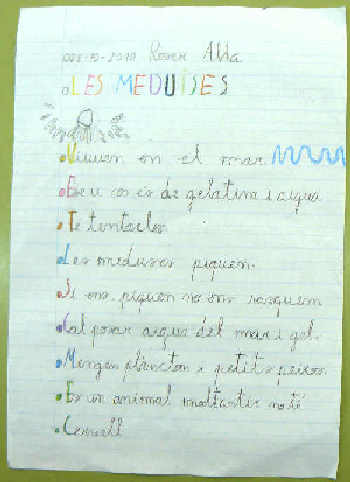 Roser Alda
LES MEDUSES
Viuuen en el mar
El seu cos és de gelatina i aigua
Te tentacles
Les meduses piquen.
Si ens piquen no ens rasquem
Cal posar aigua del mar i gel.
Mengen plancton i petits peixos
És un animal no té
Cervell